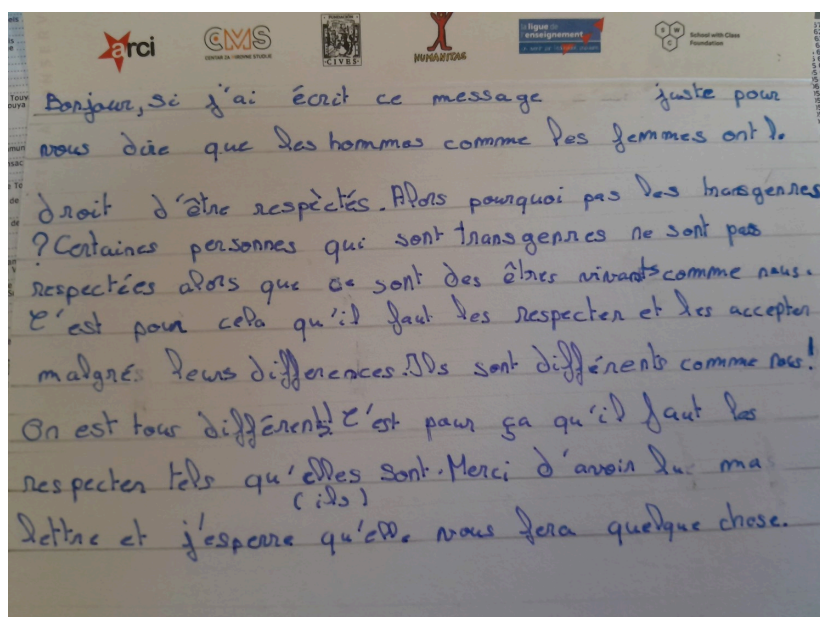 arci
CMS
CENTAR ZA MIROVNE STUDIJE
FUNDACIÓN
CIVES
HUMANITAS
la ligue de
l'enseignement
School with Class
Foundation
Bonjour, si j'ai écrit ce message juste pour
vous dire que les hommes comme les femmes ont le
droit d'être respèctés. Alors pourquoi pas les transgenres
? Certaines personnes qui sont transgenres ne sont pas
respectées alors que ce sont des êtres vivants comme nous.
C'est pour cela qu'il faut les respecter et les accepter
malgrés leurs differences. Ils sont différents comme nous!
On est tous différents! C'est pour ça qu'il faut les
respecter tels qu'elles sont. Merci d'avoir lu ma
(ils)
lettre et j'esperre qu'elle vous fera quelque chose.